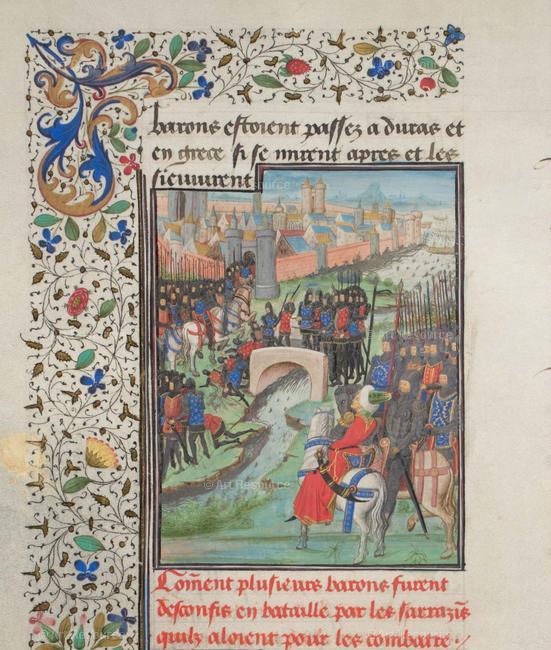 barons estoient passez a duras et
en grece si se mirent apres et les
sieuuirent
© Art Resource
Coment plusieurs barons furent
desconfis en bataille par les sarrazis
quilz aloient pour les combatre ./